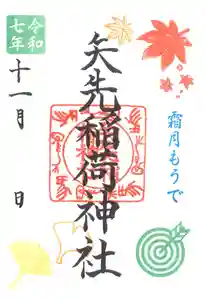 令和
七年
十一月 日
矢先稲荷神社
霜月もうで